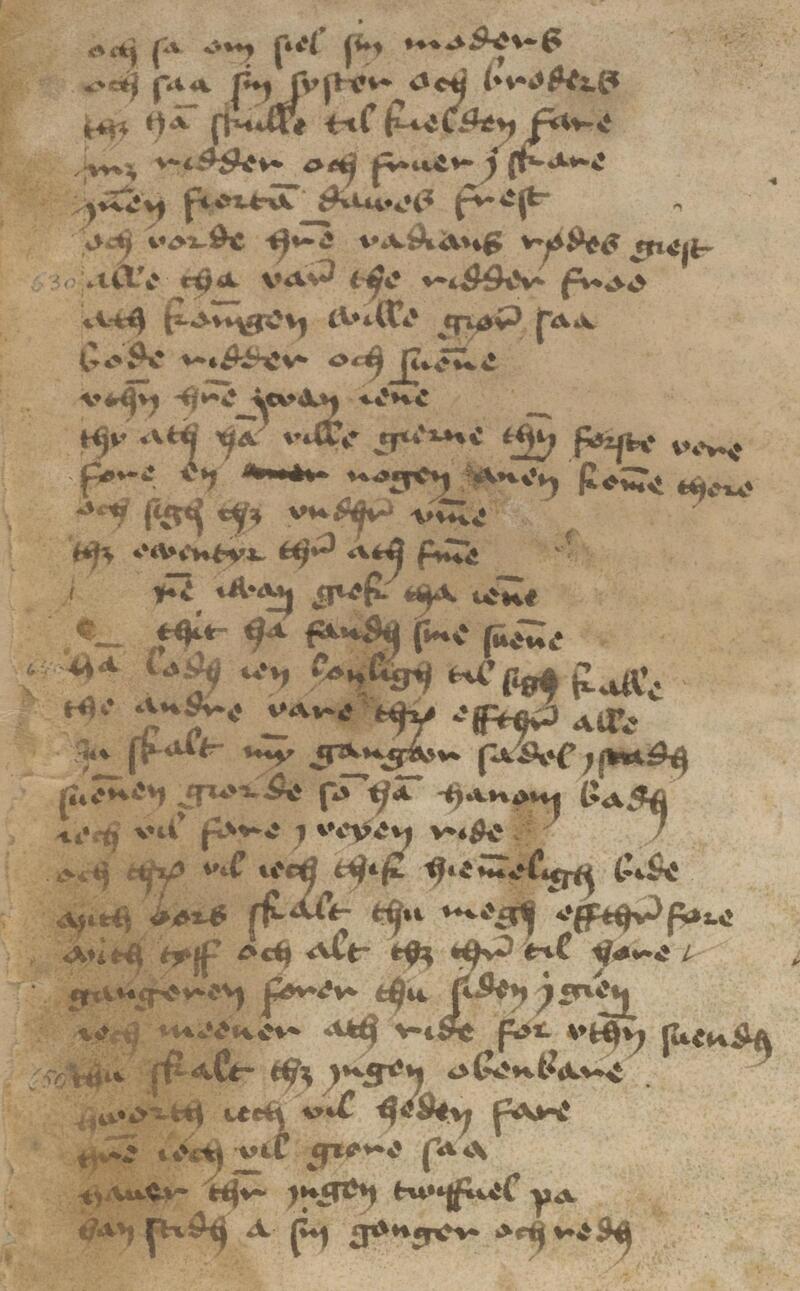 och sa om siel sin moders
och saa sin syster och broders
thz hā skulle til kielden fare
mz ridder och fruer j skare
jnēn fiortā dawes frest
och vorde hrē vadians rødes giest
630 alle tha var̄ the ridder froo
ath kon̄gen wille giør̄ saa
bode ridder och suēne
vthn̄ hrē jwan iēne
thy ath hā ville gierne thn̄ første vere
føre en nogen anen kom̄e there
och sigh thz vndhr̄ vīne
thz ewentyr thr̄ ath fīne
rē iwan giek tha iēne
thit hā fandh sine suēne
640 hā lodh ien lønligh til sigh kalle
the andre vare thr̄ effthr̄ alle
Ju skalt mȳ ganger sadel j stadh
suēnen giorde sō hā hanom badh
iech vil fare j veyen ride
och thr̄ vil iech thik hiem̄eligh bide
mith oors skalt thu megh effthr̄ føre
mith tyff och alt thz thr̄ til høre
gangeren fører thu siden j gien
iech meener ath ride for vthn̄ suendh
650 thu skalt thz jngen obenbare
hworth iech vil heden fare
hrē iech vil giøre saa
hauer thr̄ jngen twiffuel pa
han stedh a sin ganger och redh